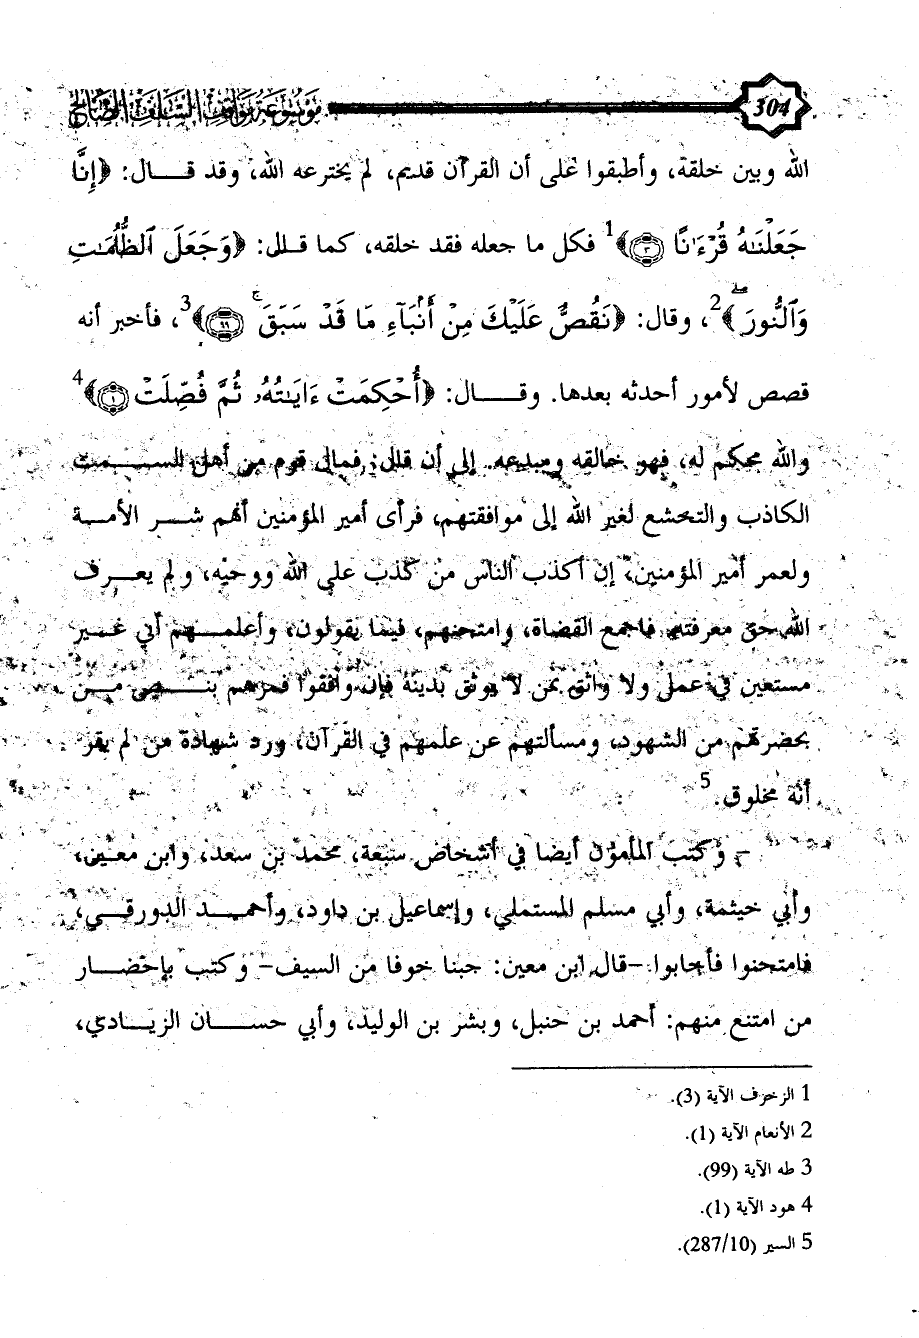 304
موسوعة مواقف السلف الصالح
الله وبين خلقة، وأطبقوا على أن القرآن قديم، لم يخترعه الله، وقد قال: ﴿إِنَّا
جَعَلْنَٰهُ قُرْءَٰنًا ﴿٣﴾﴾1 فكل ما جعله فقد خلقه، كما قال: ﴿وَجَعَلَ ٱلظُّلُمَٰتِ
وَٱلنُّورَ ۖ﴾2، وقال: ﴿نَقُصُّ عَلَيْكَ مِنْ أَنۢبَآءِ مَا قَدْ سَبَقَ ۚ ﴿٩٩﴾﴾3، فأخبر أنه
قصص لأمور أحدثه بعدها. وقال: ﴿أُحْكِمَتْ ءَايَٰتُهُۥ ثُمَّ فُصِّلَتْ ﴿١﴾﴾4
والله محكم له، فهو خالقه ومبدعه. إلى أن قال: فمالى قوم من أهل السمت
الكاذب والتخشع لغير الله إلى موافقتهم، فرأى أمير المؤمنين أنهم شر الأمة
ولعمر أمير المؤمنين، إن أكذب الناس من كذب على الله ووحيه، ولم يعرف
الله حق معرفته. فاجمع القضاة، وامتحنهم، فيما يقولون، وأعلمهم أني غير
مستعين في عمل ولا واثق بمن لا يوثق بدينه فإن وافقوا فمرهم بنص من
بحضرتهم من الشهود، ومسألتهم عن علمهم في القرآن، ورد شهادة من لم يقر
أنه مخلوق.5
- وكتب المأمون أيضا في أشخاص سبعة، محمد بن سعد، وابن معين،
وأبي خيثمة، وأبي مسلم المستملي، وإسماعيل بن داود، وأحمد الدورقي،
فامتحنوا فأجابوا. -قال ابن معين: جبنا خوفا من السيف- وكتب بإحضار
من امتنع منهم: أحمد بن حنبل، وبشر بن الوليد، وأبي حسان الزيادي،
1 الزخرف الآية (3).
2 الأنعام الآية (1).
3 طه الآية (99).
4 هود الآية (1).
5 السير (287/10).